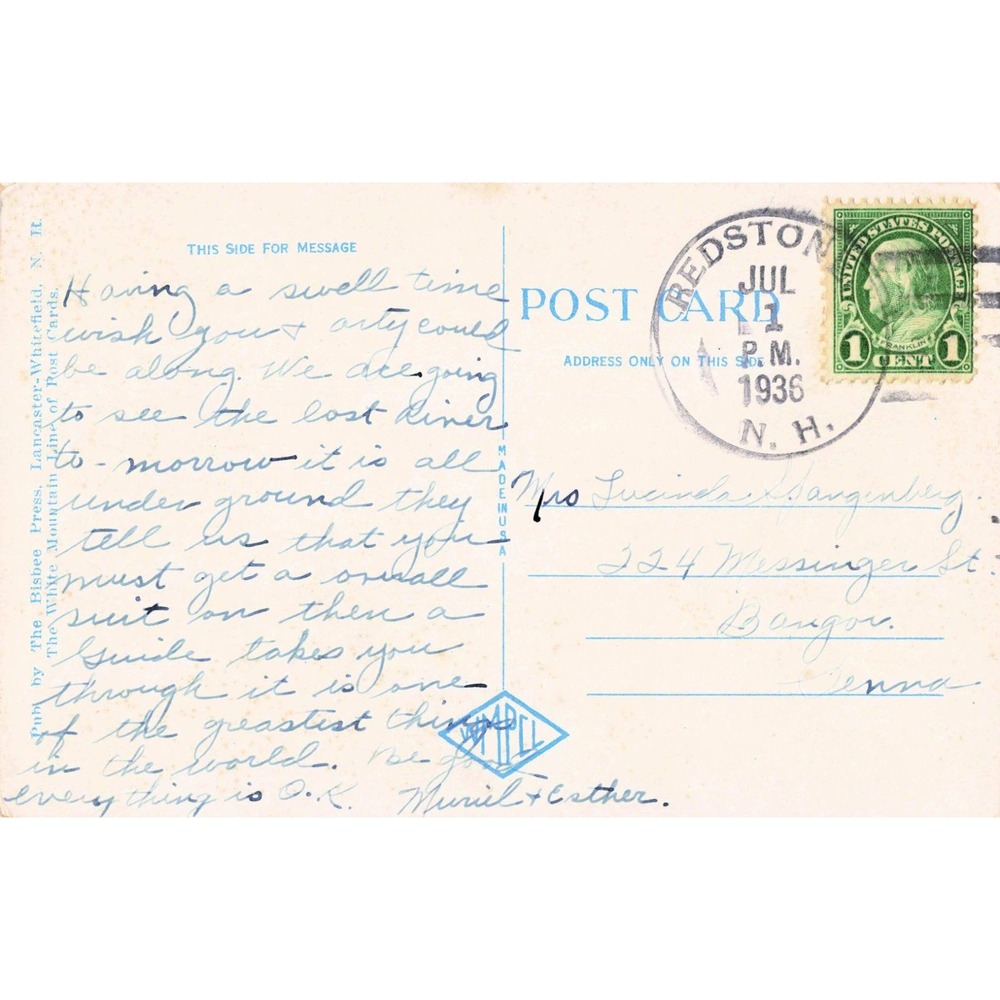 THIS SIDE FOR MESSAGE
Having a swell time
wish you + arty could
be along. We are going
to see the lost River
to-morrow it is all
under ground they
tell us that you
must get a overall
suit on then a
Guide takes you
through it is one
of the greastest things
in the world. Be good
everything is O.K. Muriel + Esther.
Pub. by The Bisbee Press, Lancaster-Whitefield, N. H.
The White Mountain Line of Post Cards.
MADE IN USA
POST CARD
ADDRESS ONLY ON THIS SIDE
REDSTONE
JUL
1
P.M.
1936
N. H.
UNITED STATES POSTAGE
FRANKLIN
1 CENT 1
Mrs Lucinda Spangenberg.
224 Messinger St.
Bangor.
Penna